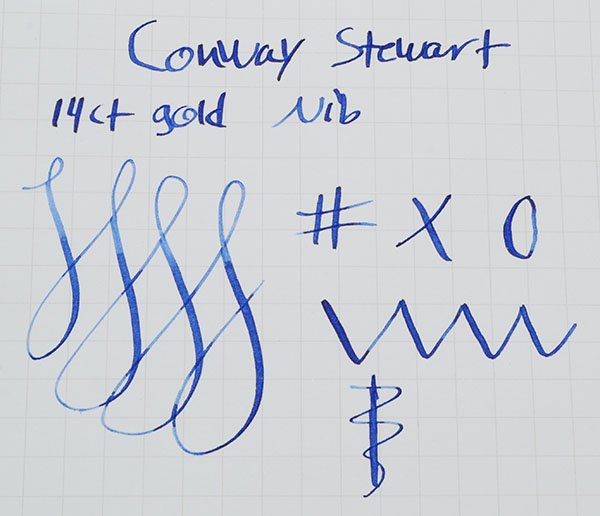 Conway Stewart
14ct gold Nib
# X O